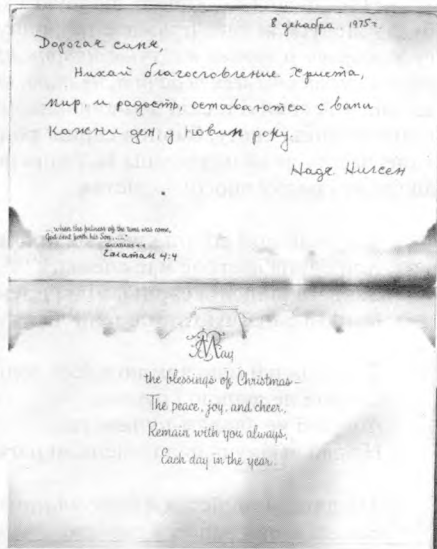 8 декабря, 1975 г.
Дорогая синя,
Нихай благословление Христа,
мир и радость, оставаютса с вами
Кажни ден у новим року.
Надя Нилсен
...when the fulness of the time was come,
God sent forth his Son......"
GALATIANS 4:4
Галатам 4:4
May
the blessings of Christmas
The peace, joy, and cheer,
Remain with you always,
Each day in the year.